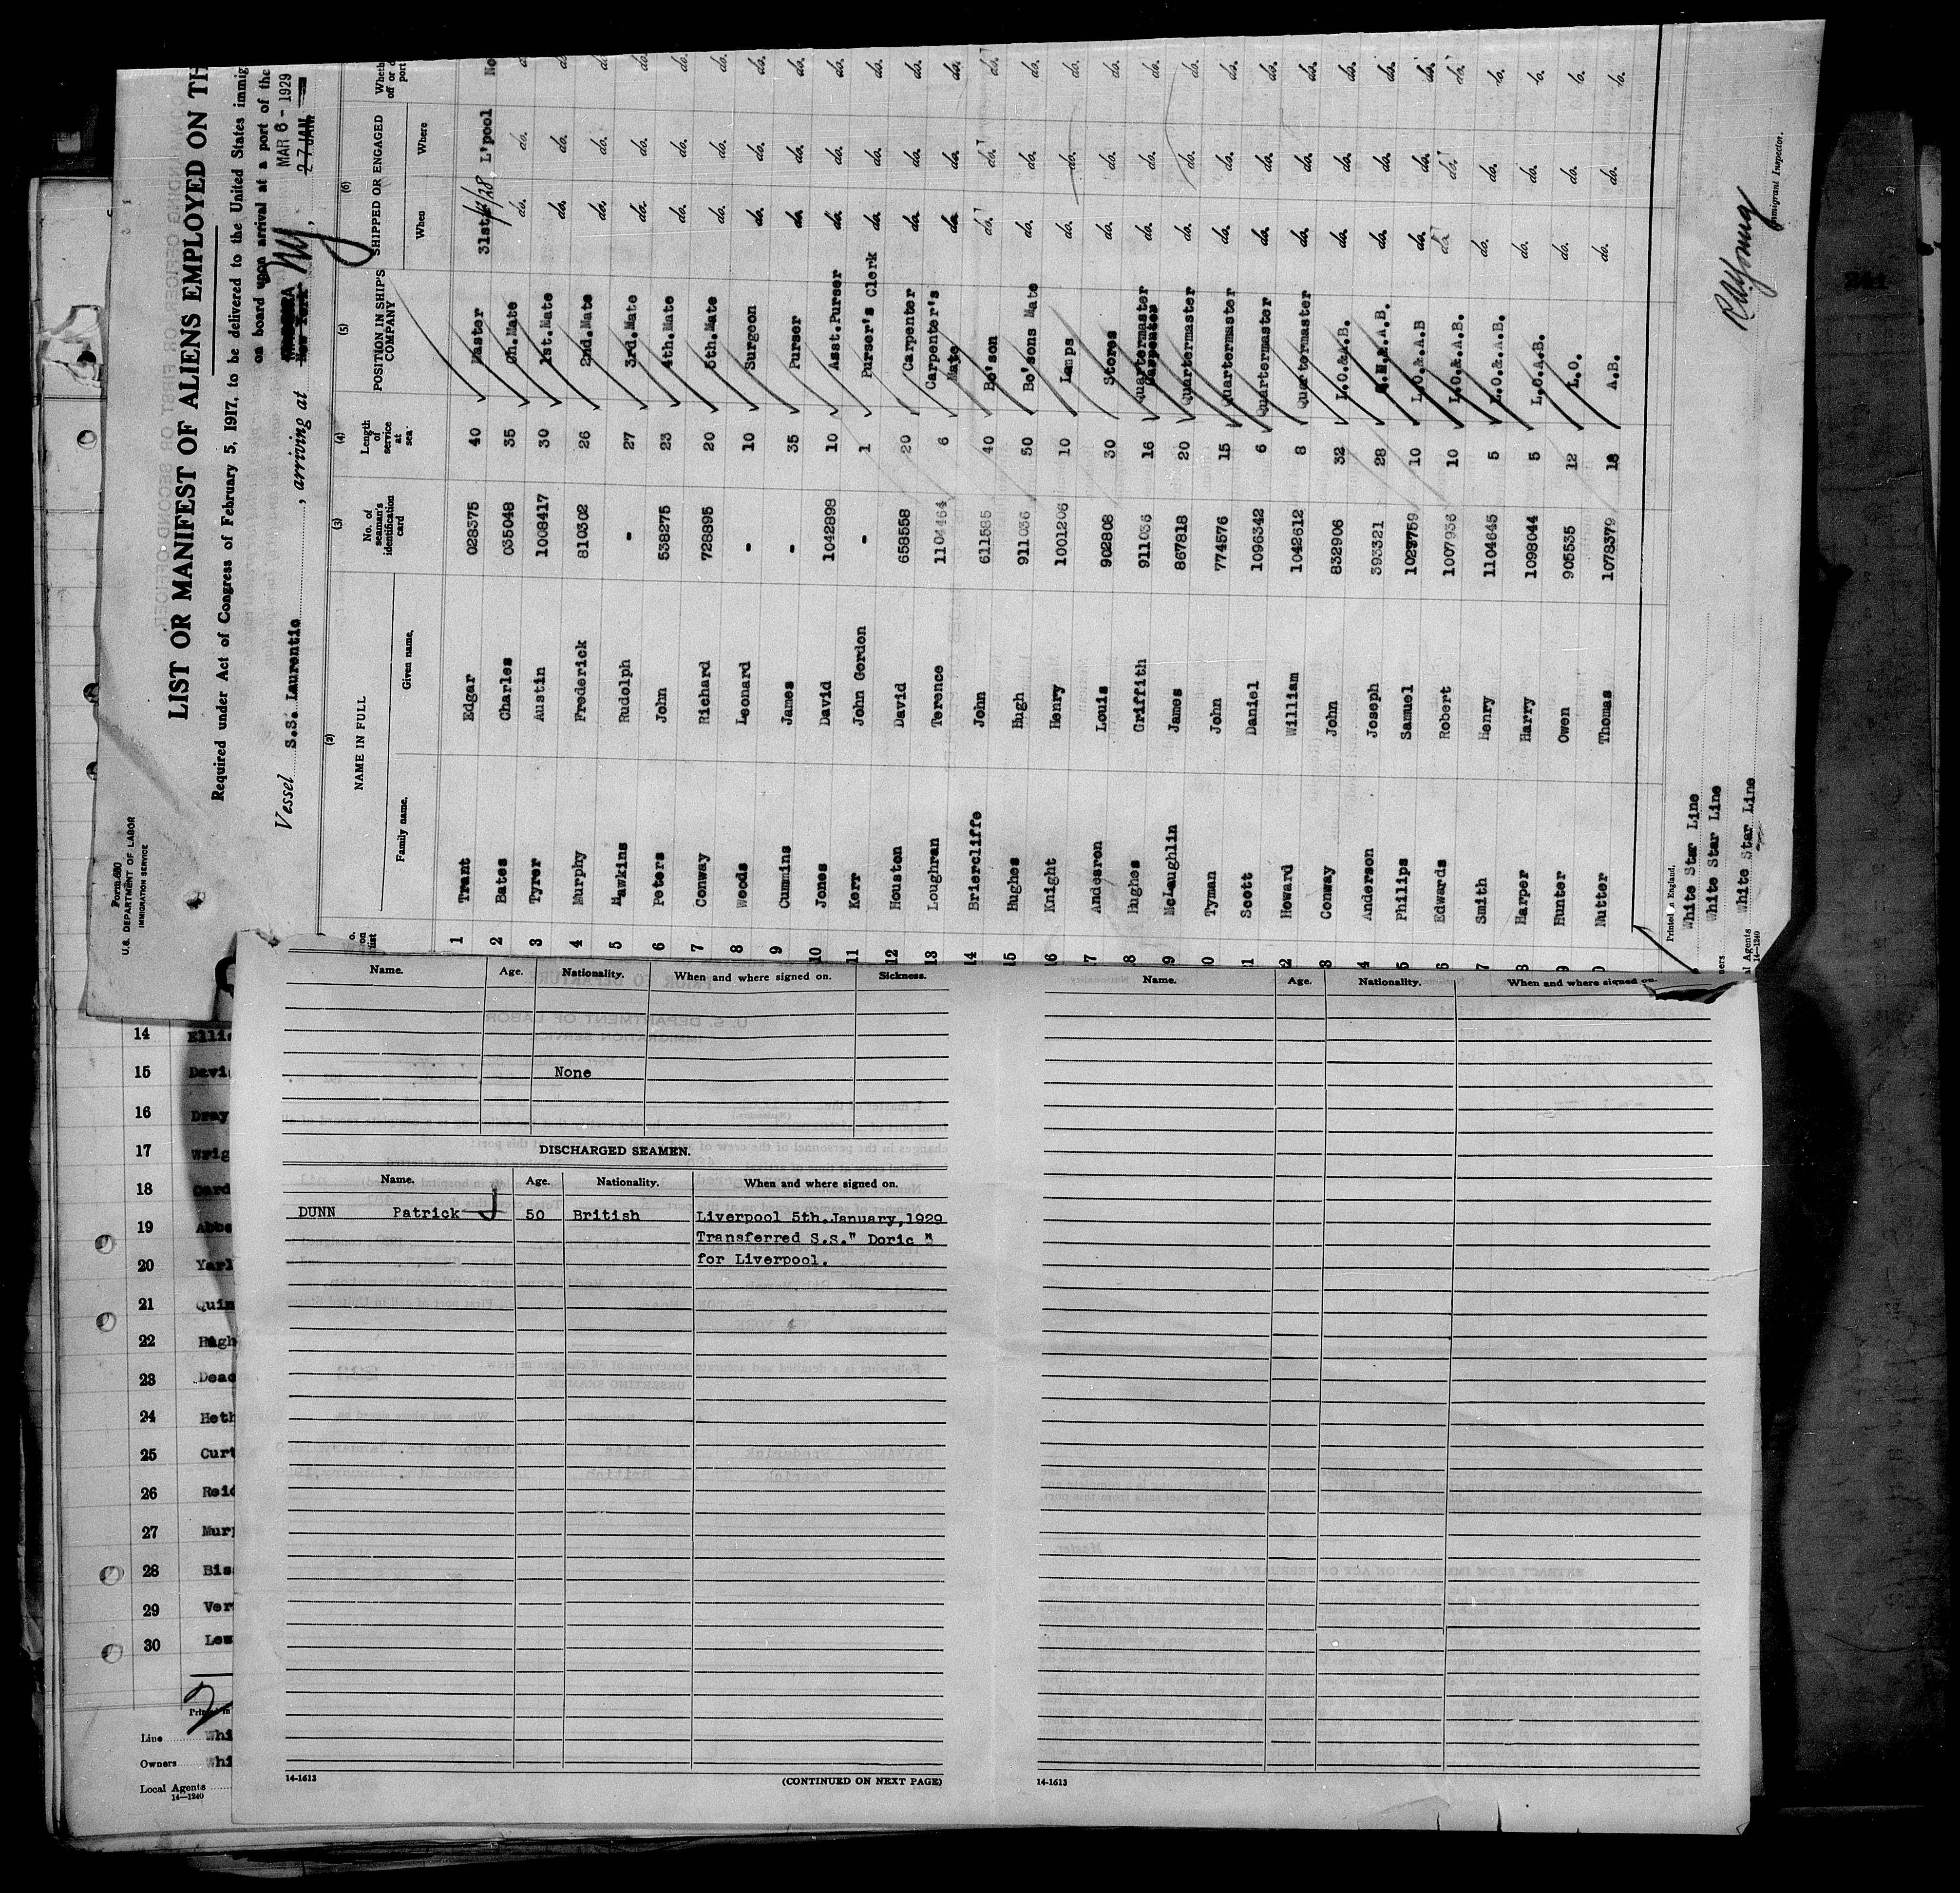 Form 680
U.S. DEPARTMENT OF LABOR
IMMIGRATION SERVICE
LIST OR MANIFEST OF ALIENS EMPLOYED ON TH
Required under Act of Congress of February 5, 1917, to be delivered to the United States immig
on board upon arrival at a port of the
Vessel S.S. Laurentic, arriving at New York NY, MAR 6 - 1929
27 JAN
(2) (3) (4) (5) (6)
o. on list NAME IN FULL No. of seaman's identification card Length of service at sea POSITION IN SHIP'S COMPANY SHIPPED OR ENGAGED Wheth off or port
Family name. Given name. When Where
1 Trent Edgar 028375 40 Master 31st/12/28 L'pool No
2 Bates Charles 035048 35 Ch.Mate do. do. d
3 Tyrer Austin 1008417 30 1st.Mate do. do. do
4 Murphy Frederick 810302 26 2nd.Mate do. do. do
5 Hawkins Rudolph - 27 3rd.Mate do. do. do.
6 Peters John 538275 23 4th.Mate do. do. do.
7 Conway Richard 728895 20 5th.Mate do. do. do.
8 Woods Leonard - 10 Surgeon do. do. do.
9 Cummins James - 35 Purser do. do. do.
10 Jones David 1042898 10 Asst.Purser do. do. do.
11 Kerr John Gordon - 1 Purser's Clerk do. do. do.
12 Houston David 658558 20 Carpenter do. do. do.
13 Loughran Terence 1104464 6 Carpenter's Mate do. do. do.
14 Briercliffe John 611585 40 Bo'son do. do. do.
15 Hughes Hugh 911036 30 Bo'sons Mate do. do. do.
16 Knight Henry 1001206 10 Lamps do. do. do.
7 Andesron Louis 902808 30 Stores do. do. do.
8 Hughes Griffith 911036 16 Quartermaster Carpenter do. do. do.
9 McLaughlin James 867818 20 Quartermaster do. do. do.
0 Tyman John 774576 15 Quartermaster do. do. do.
1 Scott Daniel 1096342 6 Quartermaster do. do. do.
2 Howard William 1042612 8 Quartermaster do. do. do.
3 Conway John 832906 32 L.O.&.A.B. do. do. do.
4 Anderson Joseph 393321 28 &.A.B. do. do. do.
5 Philips Samuel 1029759 10 L.O.&.A.B do. do. do.
6 Edwards Robert 1007936 10 L.O.&.A.B. do. do. do.
7 Smith Henry 1104645 5 L.O.&.A.B. do. do. do.
8 Harper Harry 1098044 5 L.O.A.B. do. do. do.
9 Hunter Owen 905535 12 L.O. do. do. do.
0 Nutter Thomas 1078379 18 A.B. do. do. do.
Printed in England.
White Star Line
ners White Star Line
al Agents White Star Line
14-1240
Immigrant Inspector.
Name. Age. Nationality. When and where signed on. Sickness.
None
DISCHARGED SEAMEN.
Name. Age. Nationality. When and where signed on.
DUNN Patrick 50 British Liverpool 5th.January,1929
Transferred S.S." Doric "
for Liverpool.
14-1613 (CONTINUED ON NEXT PAGE)
Name. Age. Nationality. When and where signed on.
14-1613
14 Ellic
15 Davi
16 Dray
17 Wrig
18 Card
19 Abbe
20 Yarl
21 Quin
22 High
23 Deac
24 Heth
25 Curt
26 Reid
27 Mur
28 Bis
29 Ver
30 Lew
2
Printed in
Line Whi
Owners Whi
Local Agents
14-1240
241